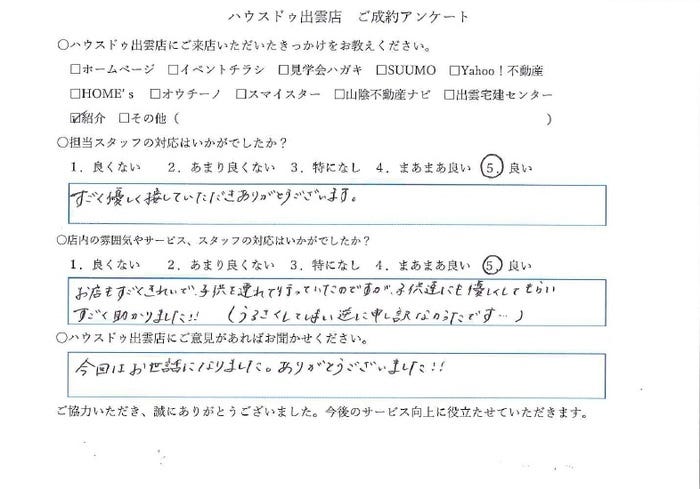 ハウスドゥ出雲店　ご成約アンケート
〇ハウスドゥ出雲店にご来店いただいたきっかけをお教えください。
□ホームページ　□イベントチラシ　□見学会ハガキ　□SUUMO　□Yahoo！不動産
□HOME's　□オウチーノ　□スマイスター　□山陰不動産ナビ　□出雲宅建センター
☑紹介　□その他（　　　　　　　　　　　　　　　　　　　　　　　　　　　）
〇担当スタッフの対応はいかがでしたか？
1．良くない　　2．あまり良くない　3．特になし　4．まあまあ良い　⑤．良い
すごく優しく接していただきありがとうございます。
〇店内の雰囲気やサービス、スタッフの対応はいかがでしたか？
1．良くない　　2．あまり良くない　3．特になし　4．まあまあ良い　⑤．良い
お店もすごくきれいで、子供を連れて行っていたのですが、子供達にも優しくしてもらい
すごく助かりました!!　（うるさくしてしまい逆に申し訳なかったです…）
〇ハウスドゥ出雲店にご意見があればお聞かせください。
今回はお世話になりました。ありがとうございました!!
ご協力いただき、誠にありがとうございました。今後のサービス向上に役立たせていただきます。